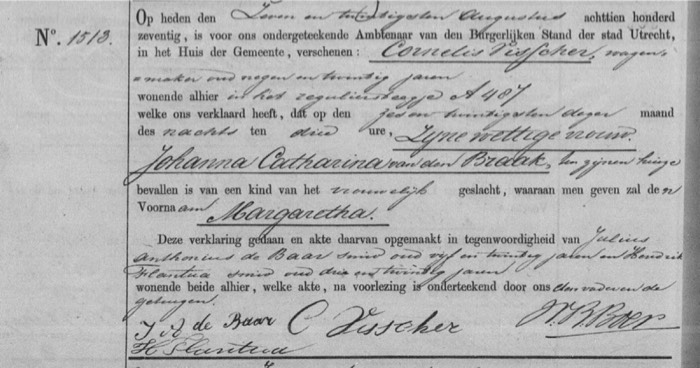 Nº. 1513.
Op heden den Zeven en twintigsten Augustus achttien honderd
zeventig, is voor ons ondergeteekende Ambtenaar van den Burgerlijken Stand der stad Utrecht,
in het Huis der Gemeente, verschenen: Cornelis Visscher, wagen-
maker oud negen en twintig jaren
wonende alhier in het reguliersteegje A 487
welke ons verklaard heeft, dat op den zes en twintigsten dezer maand
des nachts ten drie ure, Zijne wettige vrouw.
Johanna Catharina van den Braak, ten zijnen huize
bevallen is van een kind van het vrouwelijk geslacht, waaraan men geven zal de n
Voornaam Margaretha.
Deze verklaring gedaan en akte daarvan opgemaakt in tegenwoordigheid van Julius
Anthonius de Baar smid oud vijf en twintig jaren en Hendrik
Plantua smid oud drie en twintig jaren
wonende beide alhier, welke akte, na voorlezing is onderteekend door ons den vader en de
getuigen.
J A de Baar C Visscher Boer
H Plantua